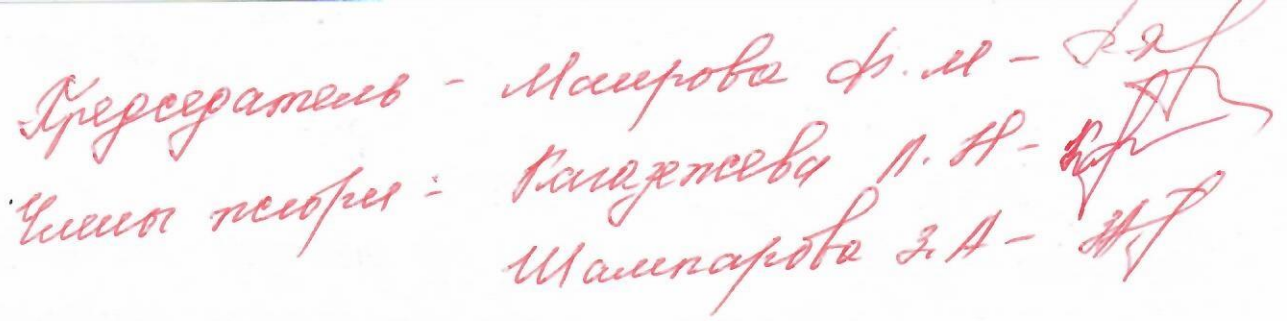 Председатель - Маирова Ф. М -
Члены жюри : Кагазежева Л. Н -
Шампарова З. А -